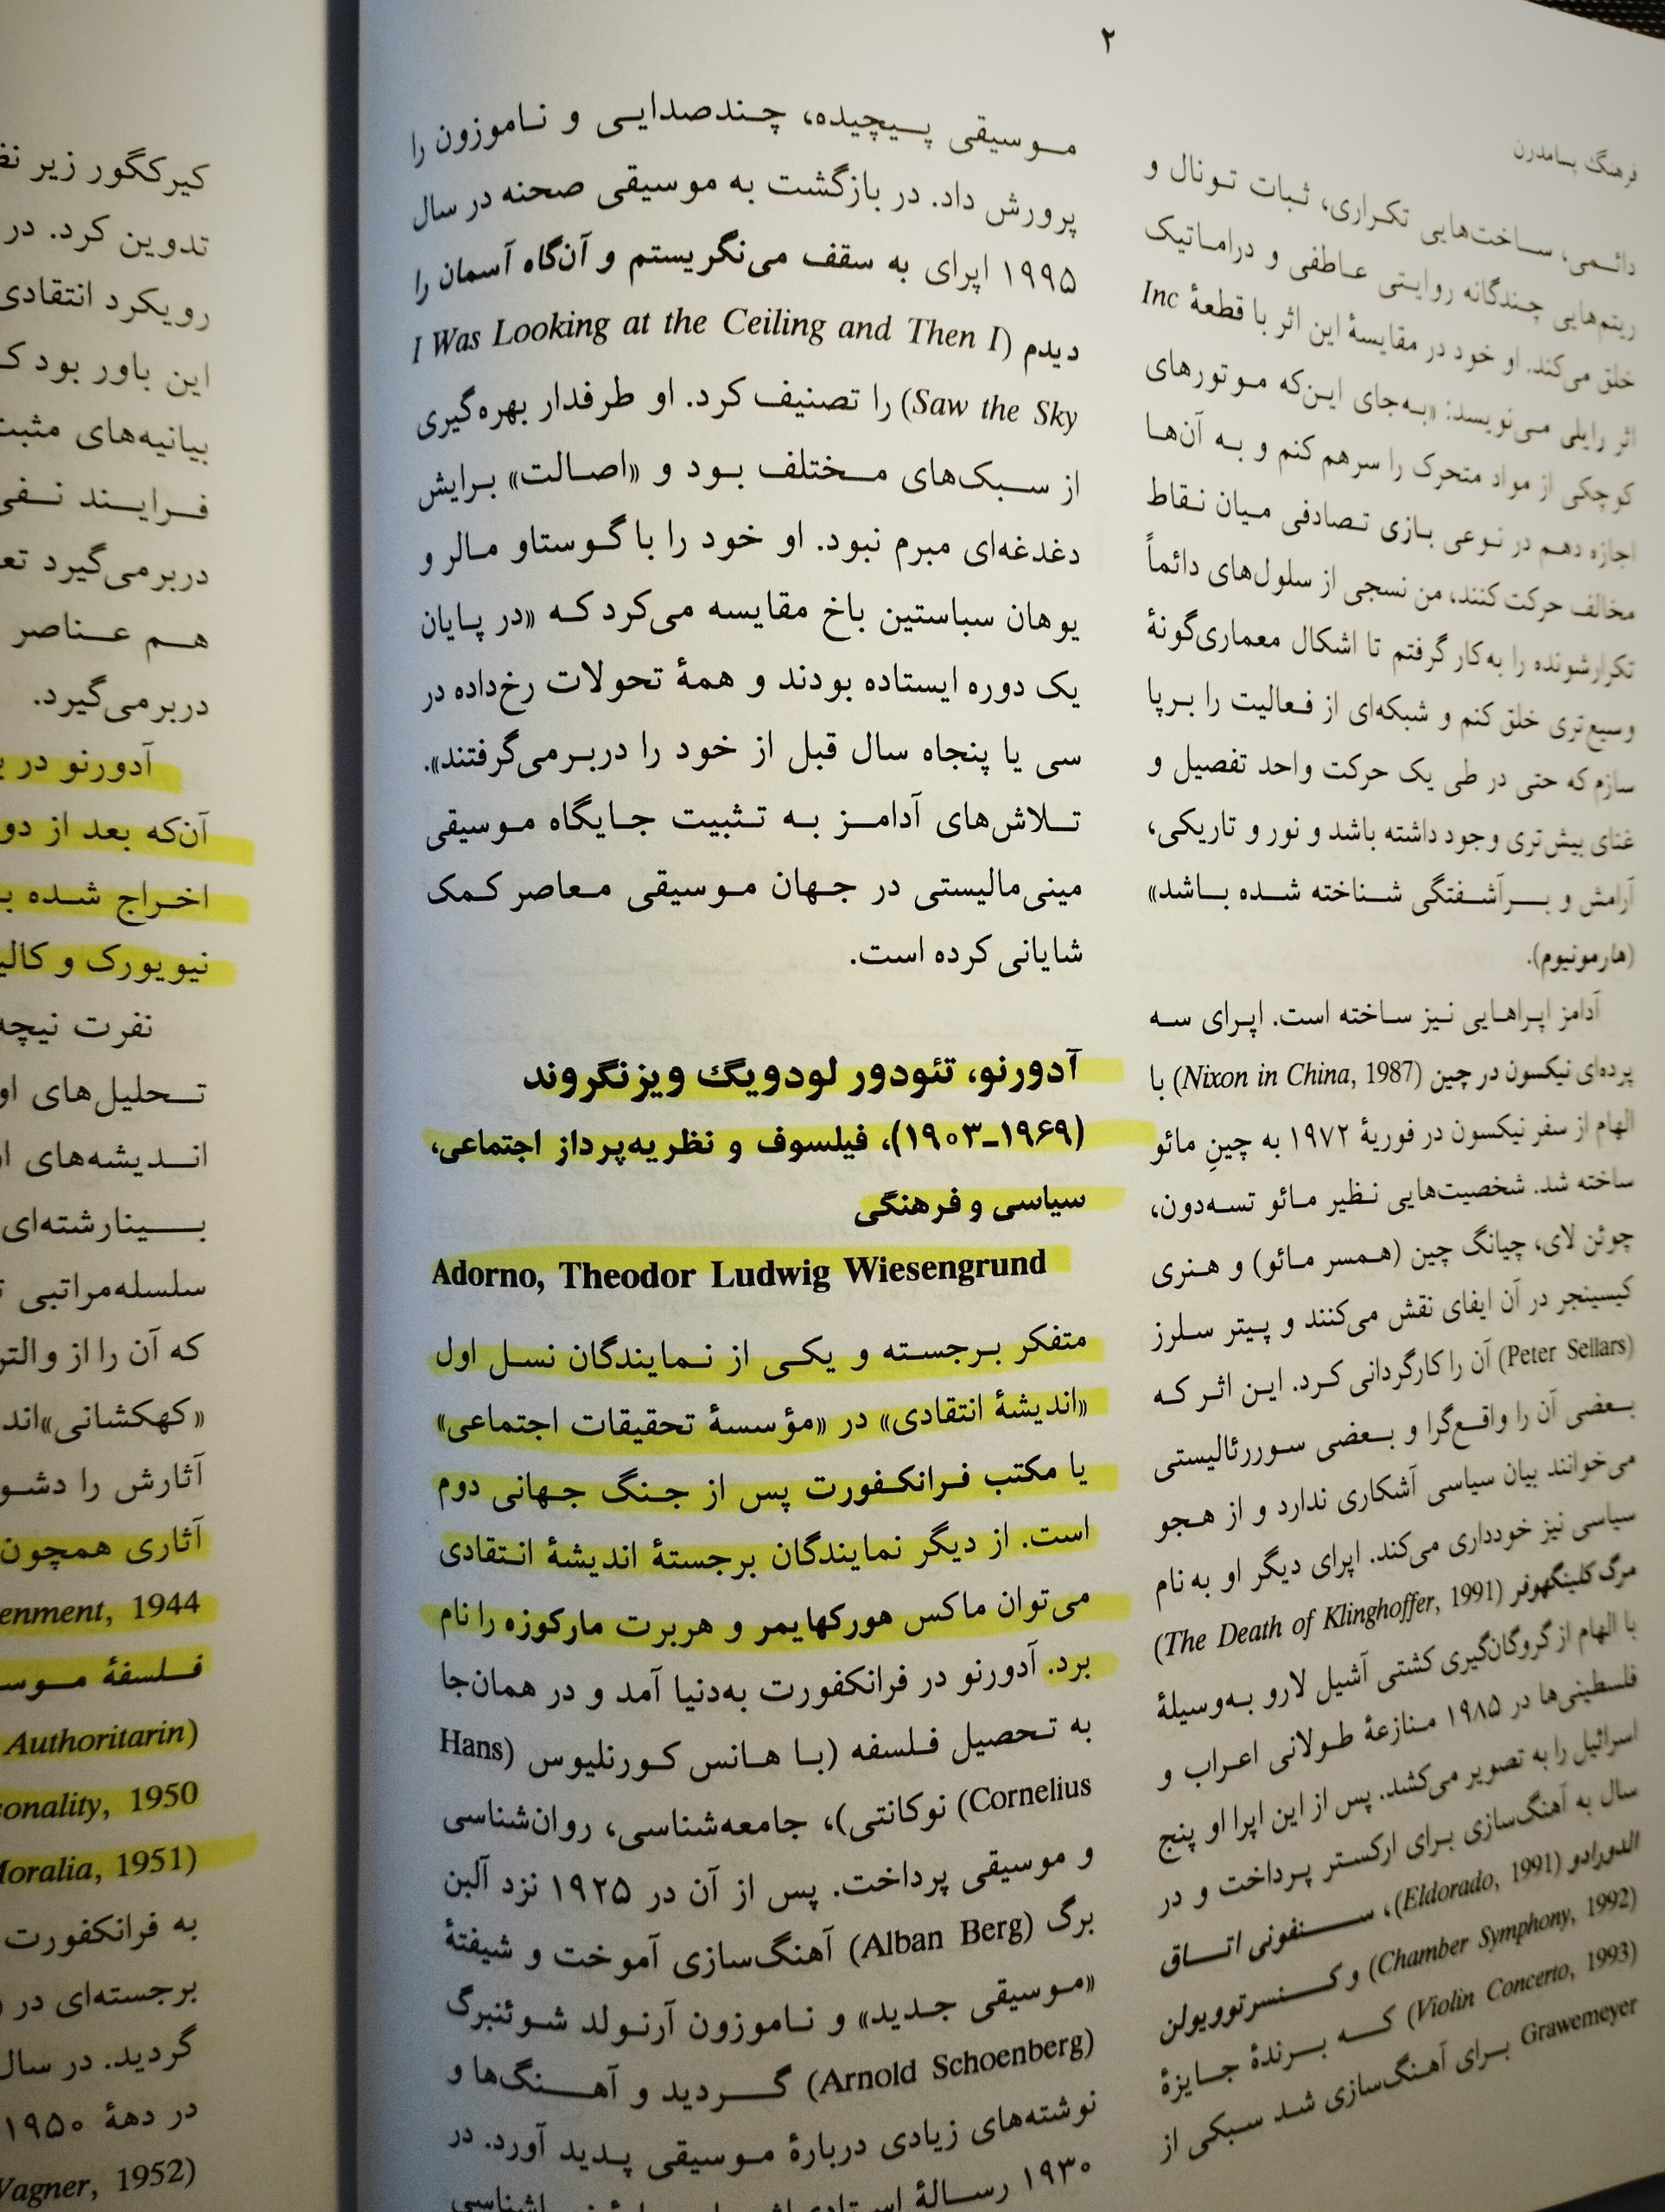 ۲
فرهنگ پسامدرن
دائمی، ساخت‌هایی تکراری، ثبات تونال و
ریتم‌هایی چندگانه روایتی عاطفی و دراماتیک
خلق می‌کند. او خود در مقایسهٔ این اثر با قطعهٔ Inc
اثر رایلی می‌نویسد: «به‌جای این‌که موتورهای
کوچکی از مواد متحرک را سرهم کنم و به آن‌ها
اجازه دهم در نوعی بازی تصادفی میان نقاط
مخالف حرکت کنند، من نسجی از سلول‌های دائماً
تکرارشونده را به‌کار گرفتم تا اشکال معماری‌گونهٔ
وسیع‌تری خلق کنم و شبکه‌ای از فعالیت را برپا
سازم که حتی در طی یک حرکت واحد تفصیل و
غنای بیش‌تری وجود داشته باشد و نور و تاریکی،
آرامش و برآشفتگی شناخته شده باشد»
(هارمونیوم).
آدامز اپراهایی نیز ساخته است. اپرای سه
پرده‌ای نیکسون در چین (Nixon in China, 1987) با
الهام از سفر نیکسون در فوریهٔ ۱۹۷۲ به چینِ مائو
ساخته شد. شخصیت‌هایی نظیر مائو تسه‌دون،
چوئن لای، چیانگ چین (همسر مائو) و هنری
کیسینجر در آن ایفای نقش می‌کنند و پیتر سلرز
(Peter Sellars) آن را کارگردانی کرد. این اثر که
بعضی آن را واقع‌گرا و بعضی سوررئالیستی
می‌خوانند بیان سیاسی آشکاری ندارد و از هجو
سیاسی نیز خودداری می‌کند. اپرای دیگر او به نام
مرگ کلینگهوفر (The Death of Klinghoffer, 1991)
با الهام از گروگان‌گیری کشتی آشیل لارو به‌وسیلهٔ
فلسطینی‌ها در ۱۹۸۵ منازعهٔ طولانی اعراب و
اسرائیل را به تصویر می‌کشد. پس از این اپرا او پنج
سال به آهنگ‌سازی برای ارکستر پرداخت و در
الدورادو (Eldorado, 1991)، سنفونی اتاق
(Chamber Symphony, 1992) و کنسرتوویولن
(Violin Concerto, 1993) که برندهٔ جایزهٔ
Grawemeyer برای آهنگ‌سازی شد سبکی از
موسیقی پیچیده، چندصدایی و ناموزون را
پرورش داد. در بازگشت به موسیقی صحنه در سال
۱۹۹۵ اپرای به سقف می‌نگریستم و آن‌گاه آسمان را
دیدم (I Was Looking at the Ceiling and Then I
Saw the Sky) را تصنیف کرد. او طرفدار بهره‌گیری
از سبک‌های مختلف بود و «اصالت» برایش
دغدغه‌ای مبرم نبود. او خود را با گوستاو مالر و
یوهان سباستین باخ مقایسه می‌کرد که «در پایان
یک دوره ایستاده بودند و همهٔ تحولات رخ‌داده در
سی یا پنجاه سال قبل از خود را دربرمی‌گرفتند».
تلاش‌های آدامز به تثبیت جایگاه موسیقی
مینی‌مالیستی در جهان موسیقی معاصر کمک
شایانی کرده است.
آدورنو، تئودور لودویگ ویزنگروند
(۱۹۶۹ـ۱۹۰۳)، فیلسوف و نظریه‌پرداز اجتماعی،
سیاسی و فرهنگی
Adorno, Theodor Ludwig Wiesengrund
متفکر برجسته و یکی از نمایندگان نسل اول
«اندیشهٔ انتقادی» در «مؤسسهٔ تحقیقات اجتماعی»
یا مکتب فرانکفورت پس از جنگ جهانی دوم
است. از دیگر نمایندگان برجستهٔ اندیشهٔ انتقادی
می‌توان ماکس هورکهایمر و هربرت مارکوزه را نام
برد. آدورنو در فرانکفورت به‌دنیا آمد و در همان‌جا
به تحصیل فلسفه (با هانس کورنلیوس (Hans
Cornelius) نوکانتی)، جامعه‌شناسی، روان‌شناسی
و موسیقی پرداخت. پس از آن در ۱۹۲۵ نزد آلبن
برگ (Alban Berg) آهنگ‌سازی آموخت و شیفتهٔ
«موسیقی جدید» و ناموزون آرنولد شوئنبرگ
(Arnold Schoenberg) گردید و آهنگ‌ها و
نوشته‌های زیادی دربارهٔ موسیقی پدید آورد. در
۱۹۳۰ رسالهٔ
کیرکگور زیر
تدوین کرد. در
رویکرد انتقادی
این باور بود
بیانیه‌های
فرایند
دربرمی‌گیرد
هم عناصر
دربرمی‌گیرد.
آدورنو در
آن‌که بعد از
اخراج شده
نیویورک و
نفرت نیچه
تحلیل‌های
اندیشه‌های
بینارشته‌ای
سلسله‌مراتبی
که آن را از
«کهکشانی»
آثارش را
آثاری همچون
1944
فلسفهٔ
Authoritarin)
1950
1951)
به فرانکفورت
برجسته‌ای در
گردید. در سال
در دههٔ ۱۹۵۰
1952)